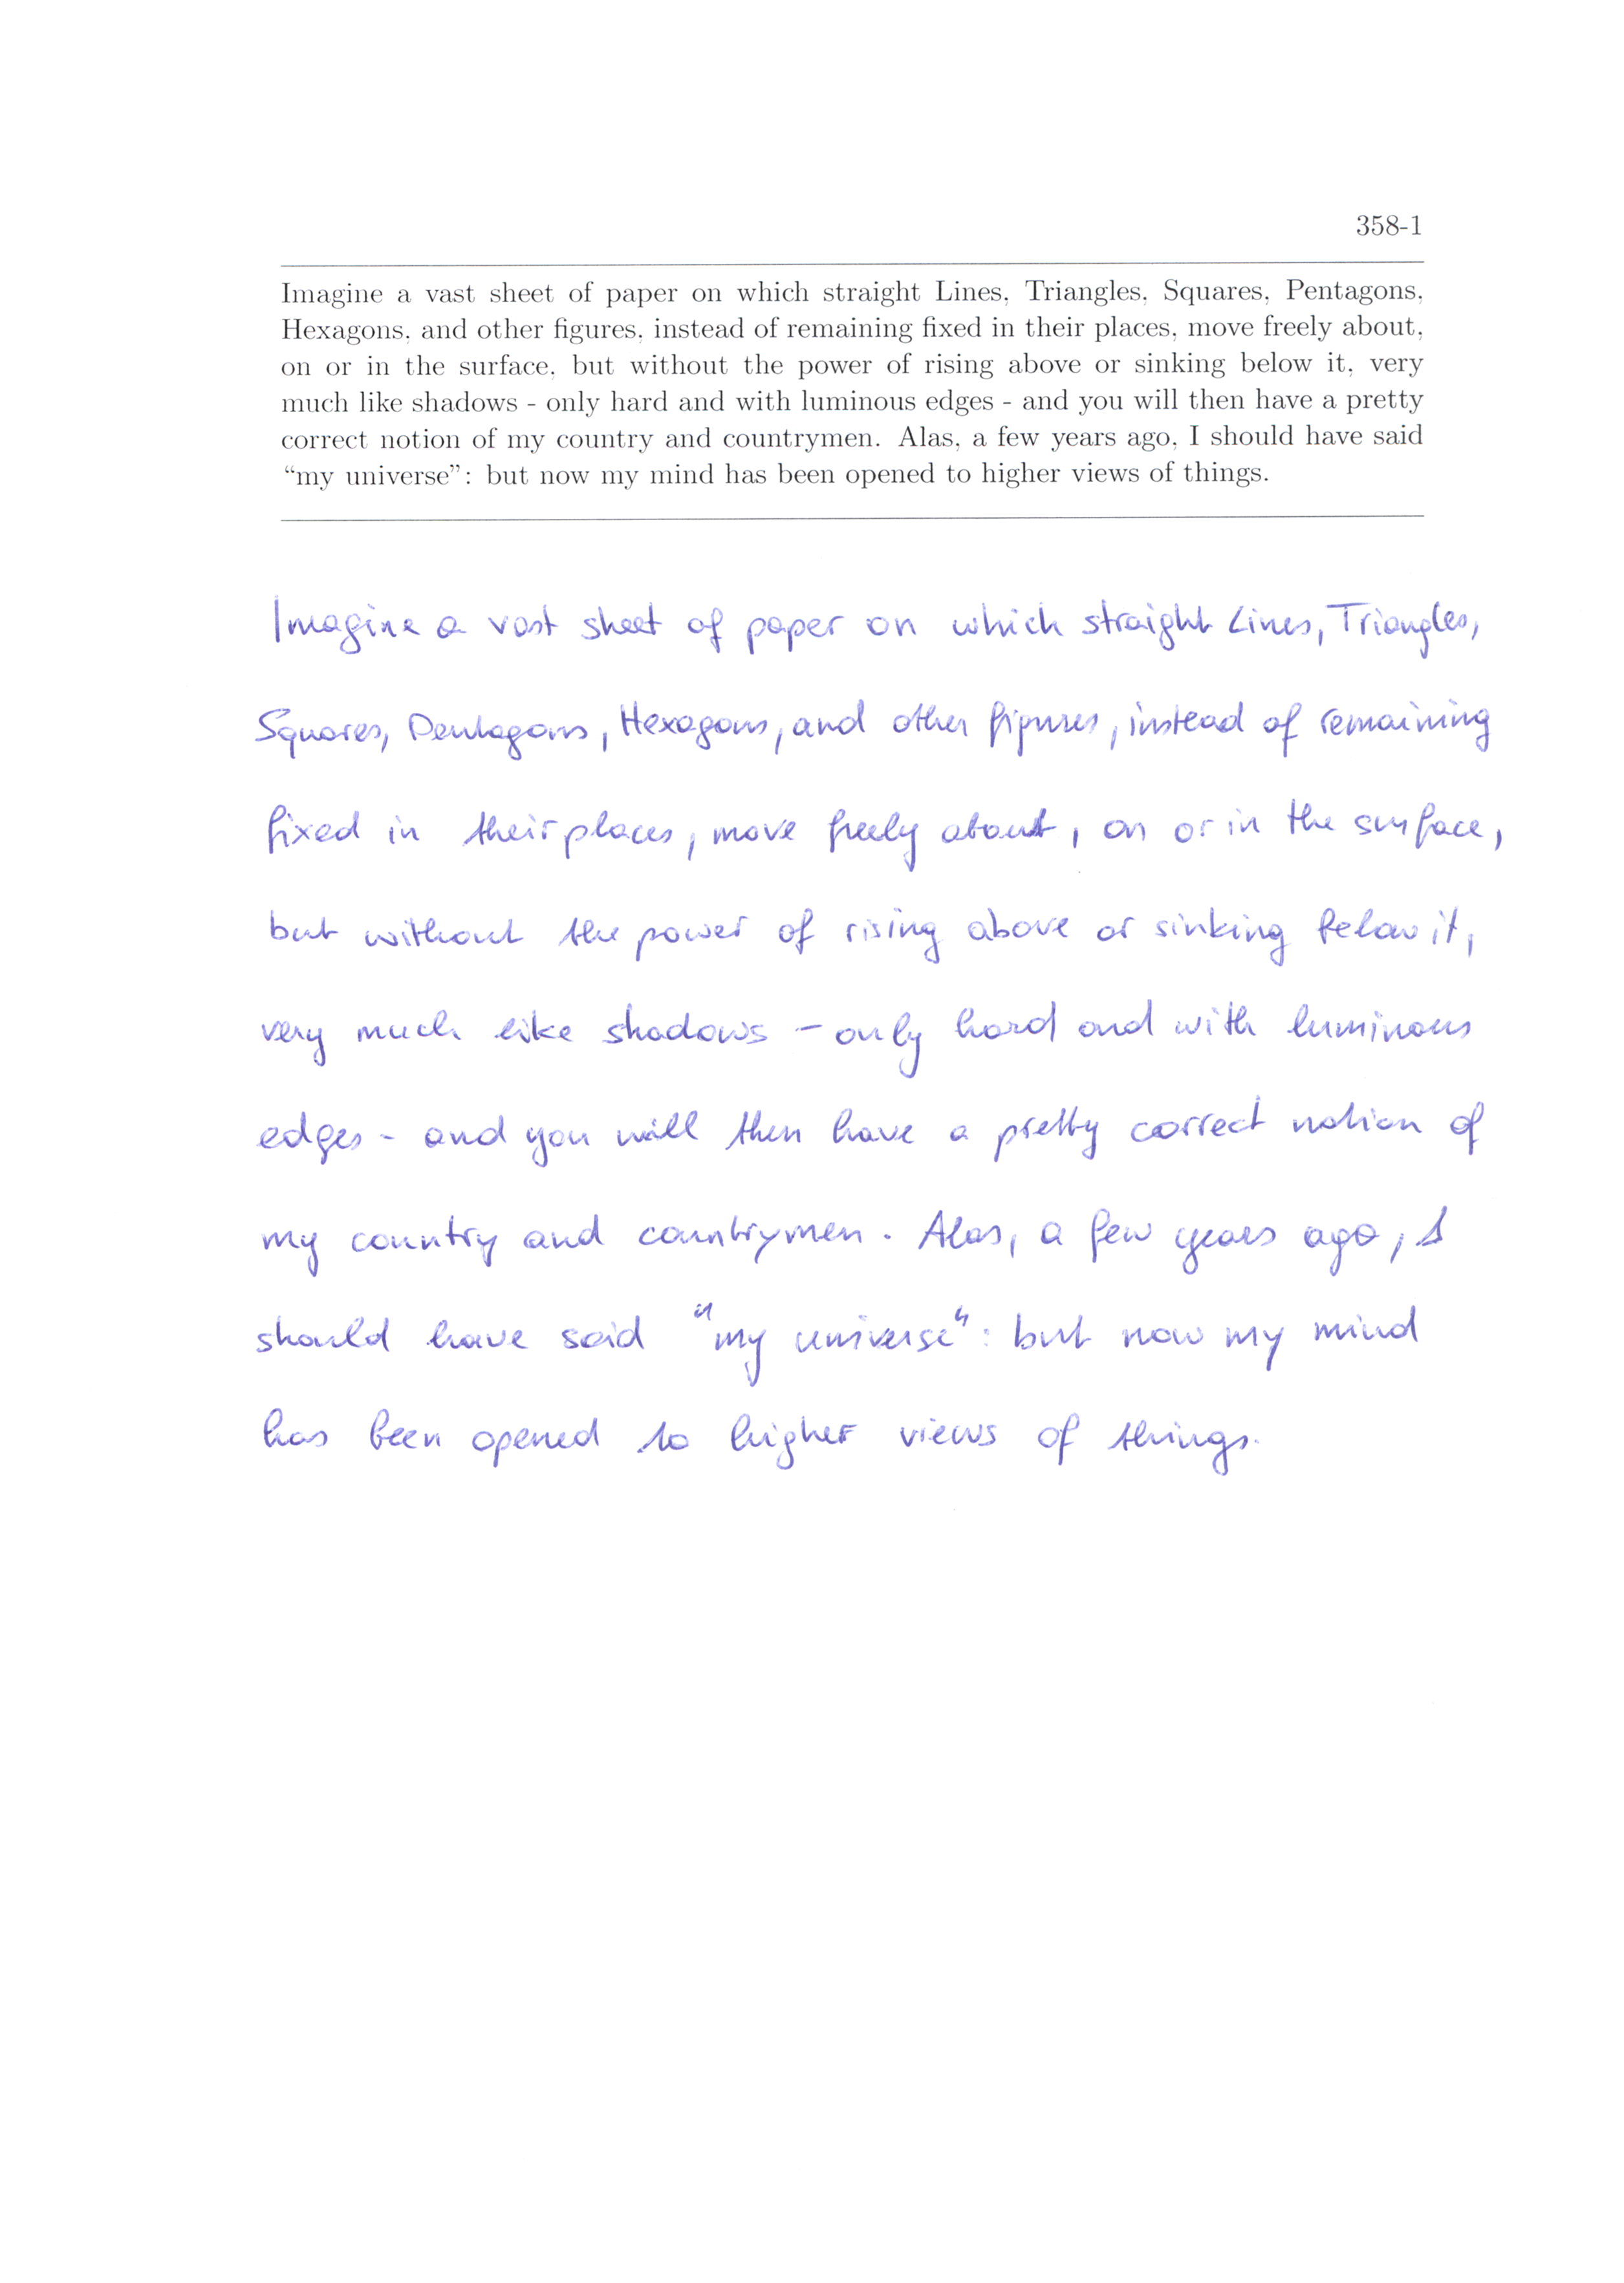 358-1
Imagine a vast sheet of paper on which straight Lines, Triangles, Squares, Pentagons,
Hexagons, and other figures, instead of remaining fixed in their places, move freely about,
on or in the surface, but without the power of rising above or sinking below it, very
much like shadows - only hard and with luminous edges - and you will then have a pretty
correct notion of my country and countrymen. Alas, a few years ago, I should have said
“my universe”: but now my mind has been opened to higher views of things.
Imagine a vast sheet of paper on which straight Lines, Triangles,
Squares, Pentagons, Hexagons, and other figures, instead of remaining
fixed in their places, move freely about, on or in the surface,
but without the power of rising above or sinking below it,
very much like shadows – only hard and with luminous
edges - and you will then have a pretty correct notion of
my country and countrymen. Alas, a few years ago, I
should have said “my universe”: but now my mind
has been opened to higher views of things.